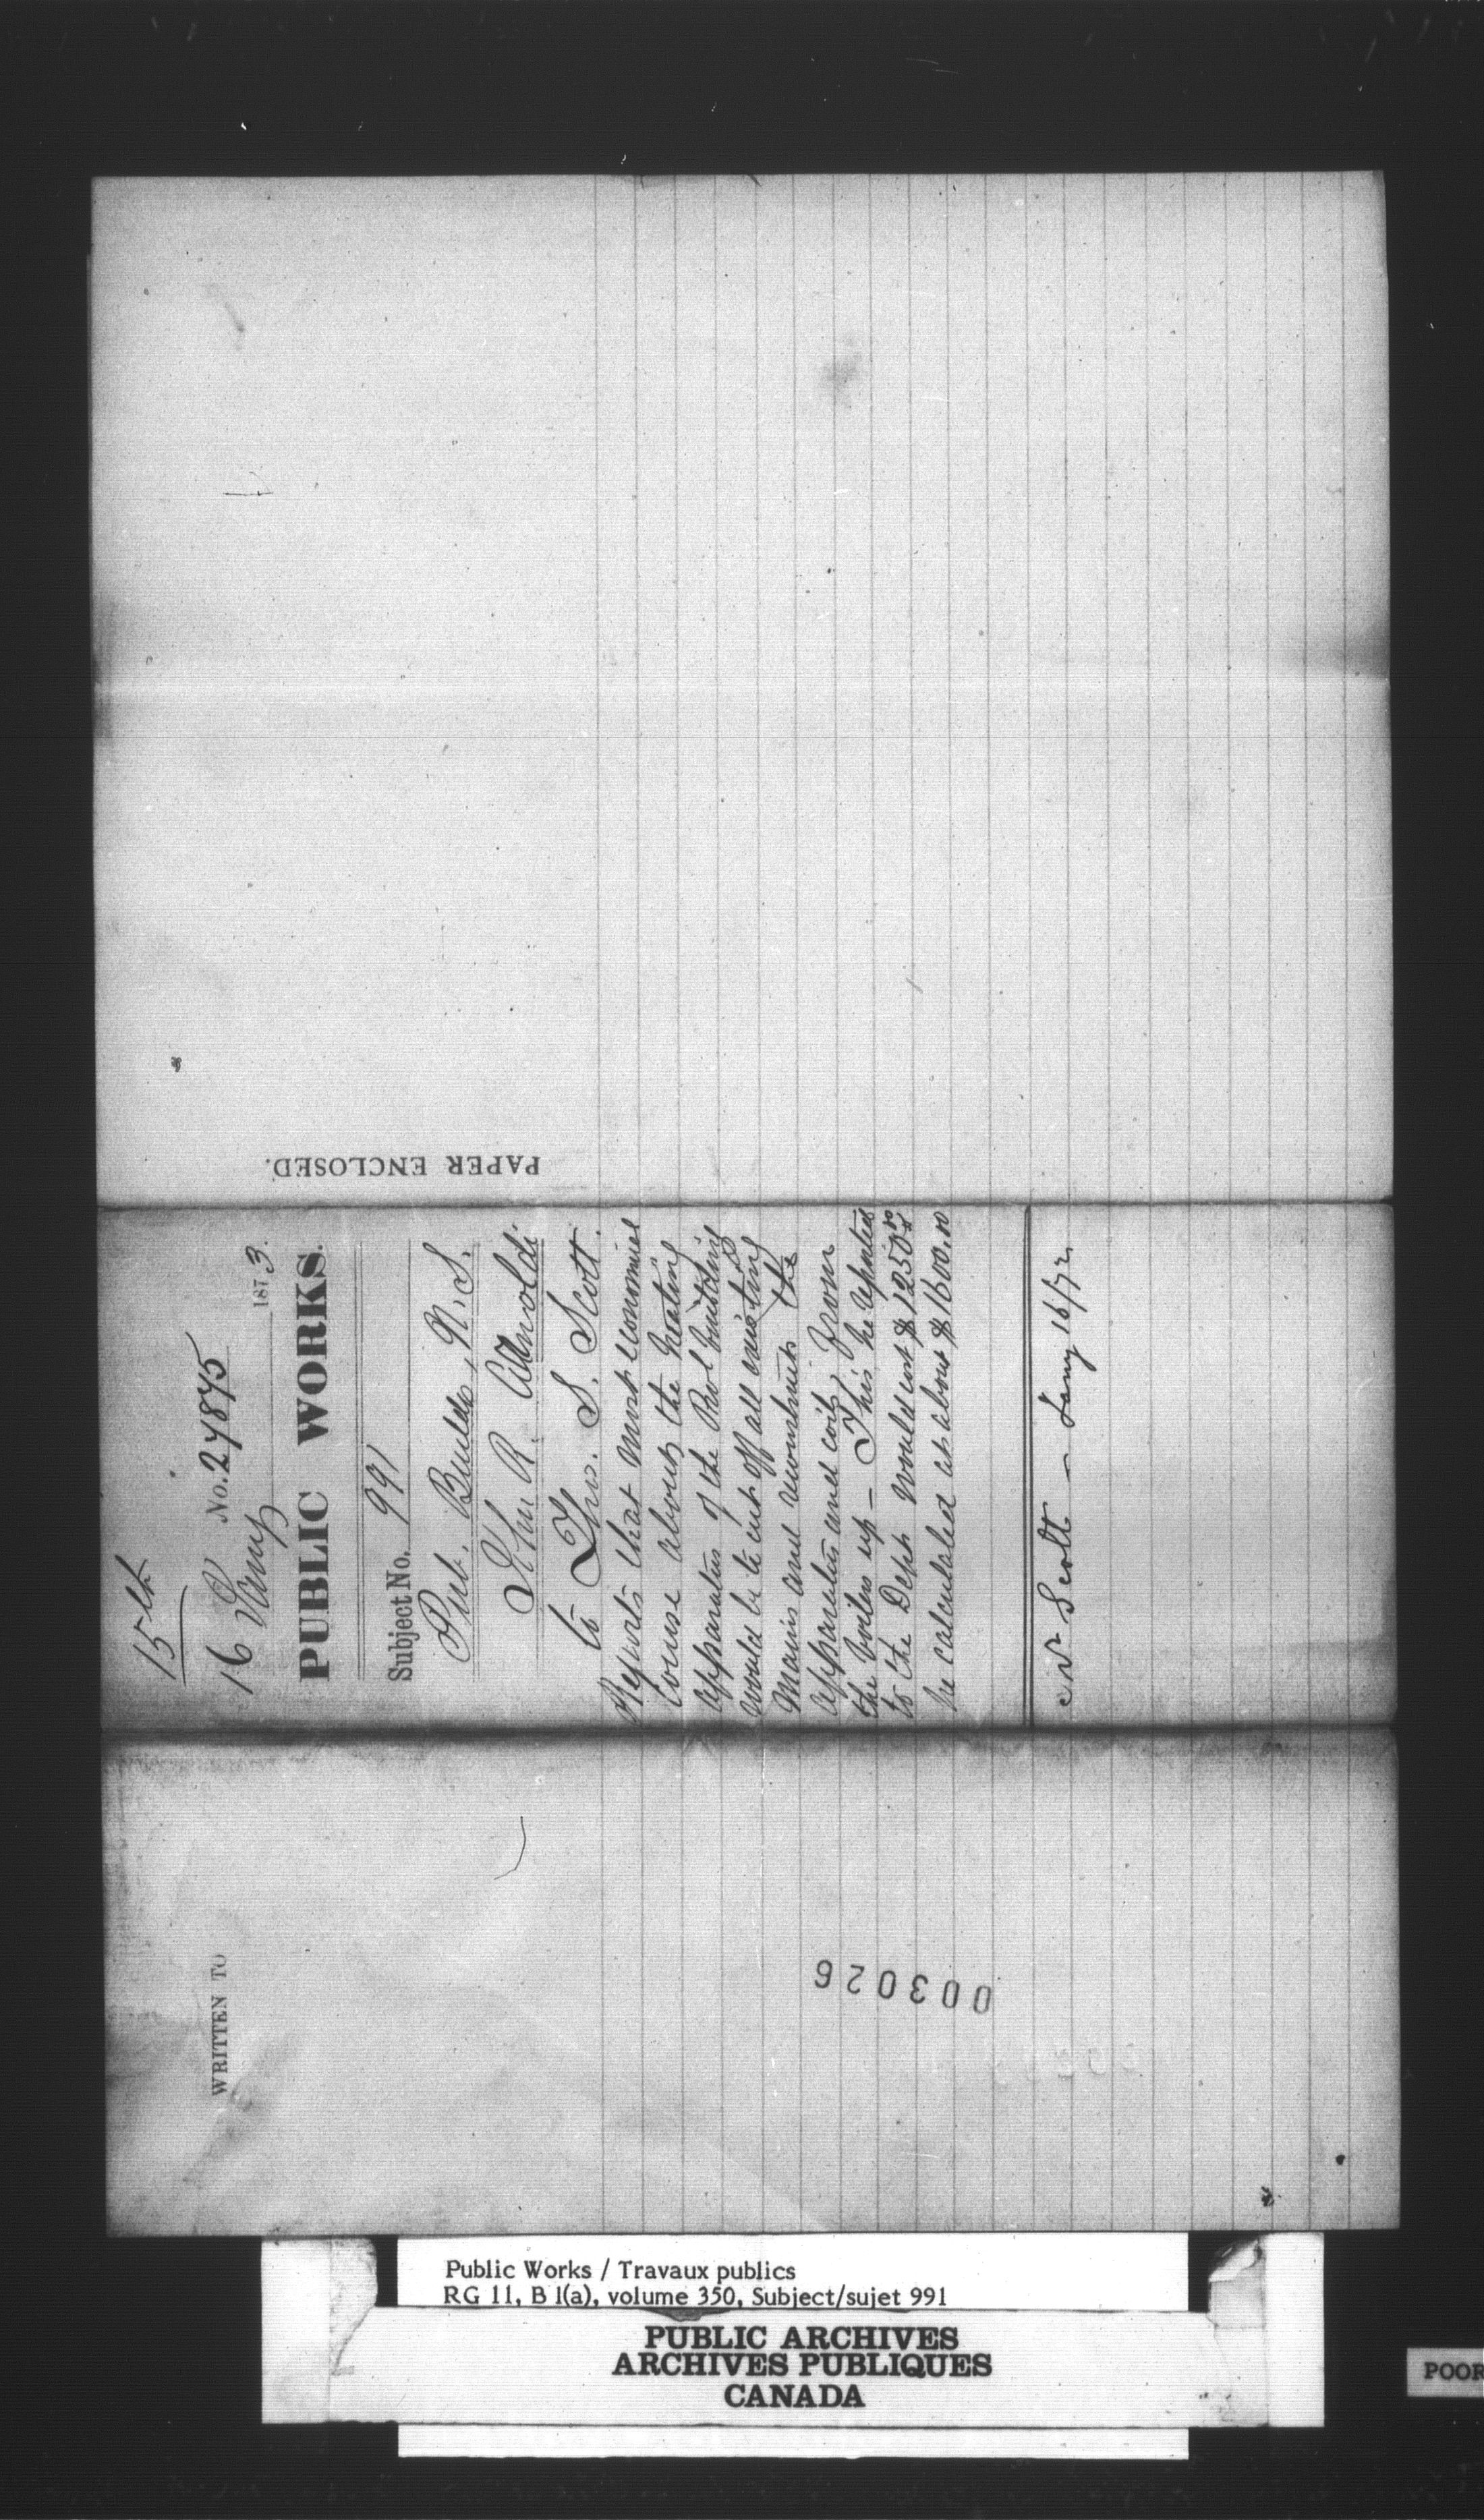 PAPER ENCLOSED.
15th
No. 24875
16 Jany 1873.
PUBLIC WORKS.
Subject No. 991
Pub. Builds, N.S.
Jhn R. Arnoldi
to Thos. S. Scott.
Reports that most economical
course about the heating
apparatus of the Prov building
would be to cut off all existing
mains and mountings the
apparatus and coils, from
the boilers up – This he reported
to the Dept would cost $1250.00
he calculated at about $1600.00
Mr Scott – Jany 16/72
WRITTEN TO
003026
Public Works / Travaux publics
RG 11, B 1(a), volume 350, Subject/sujet 991
PUBLIC ARCHIVES
ARCHIVES PUBLIQUES
CANADA
POOR